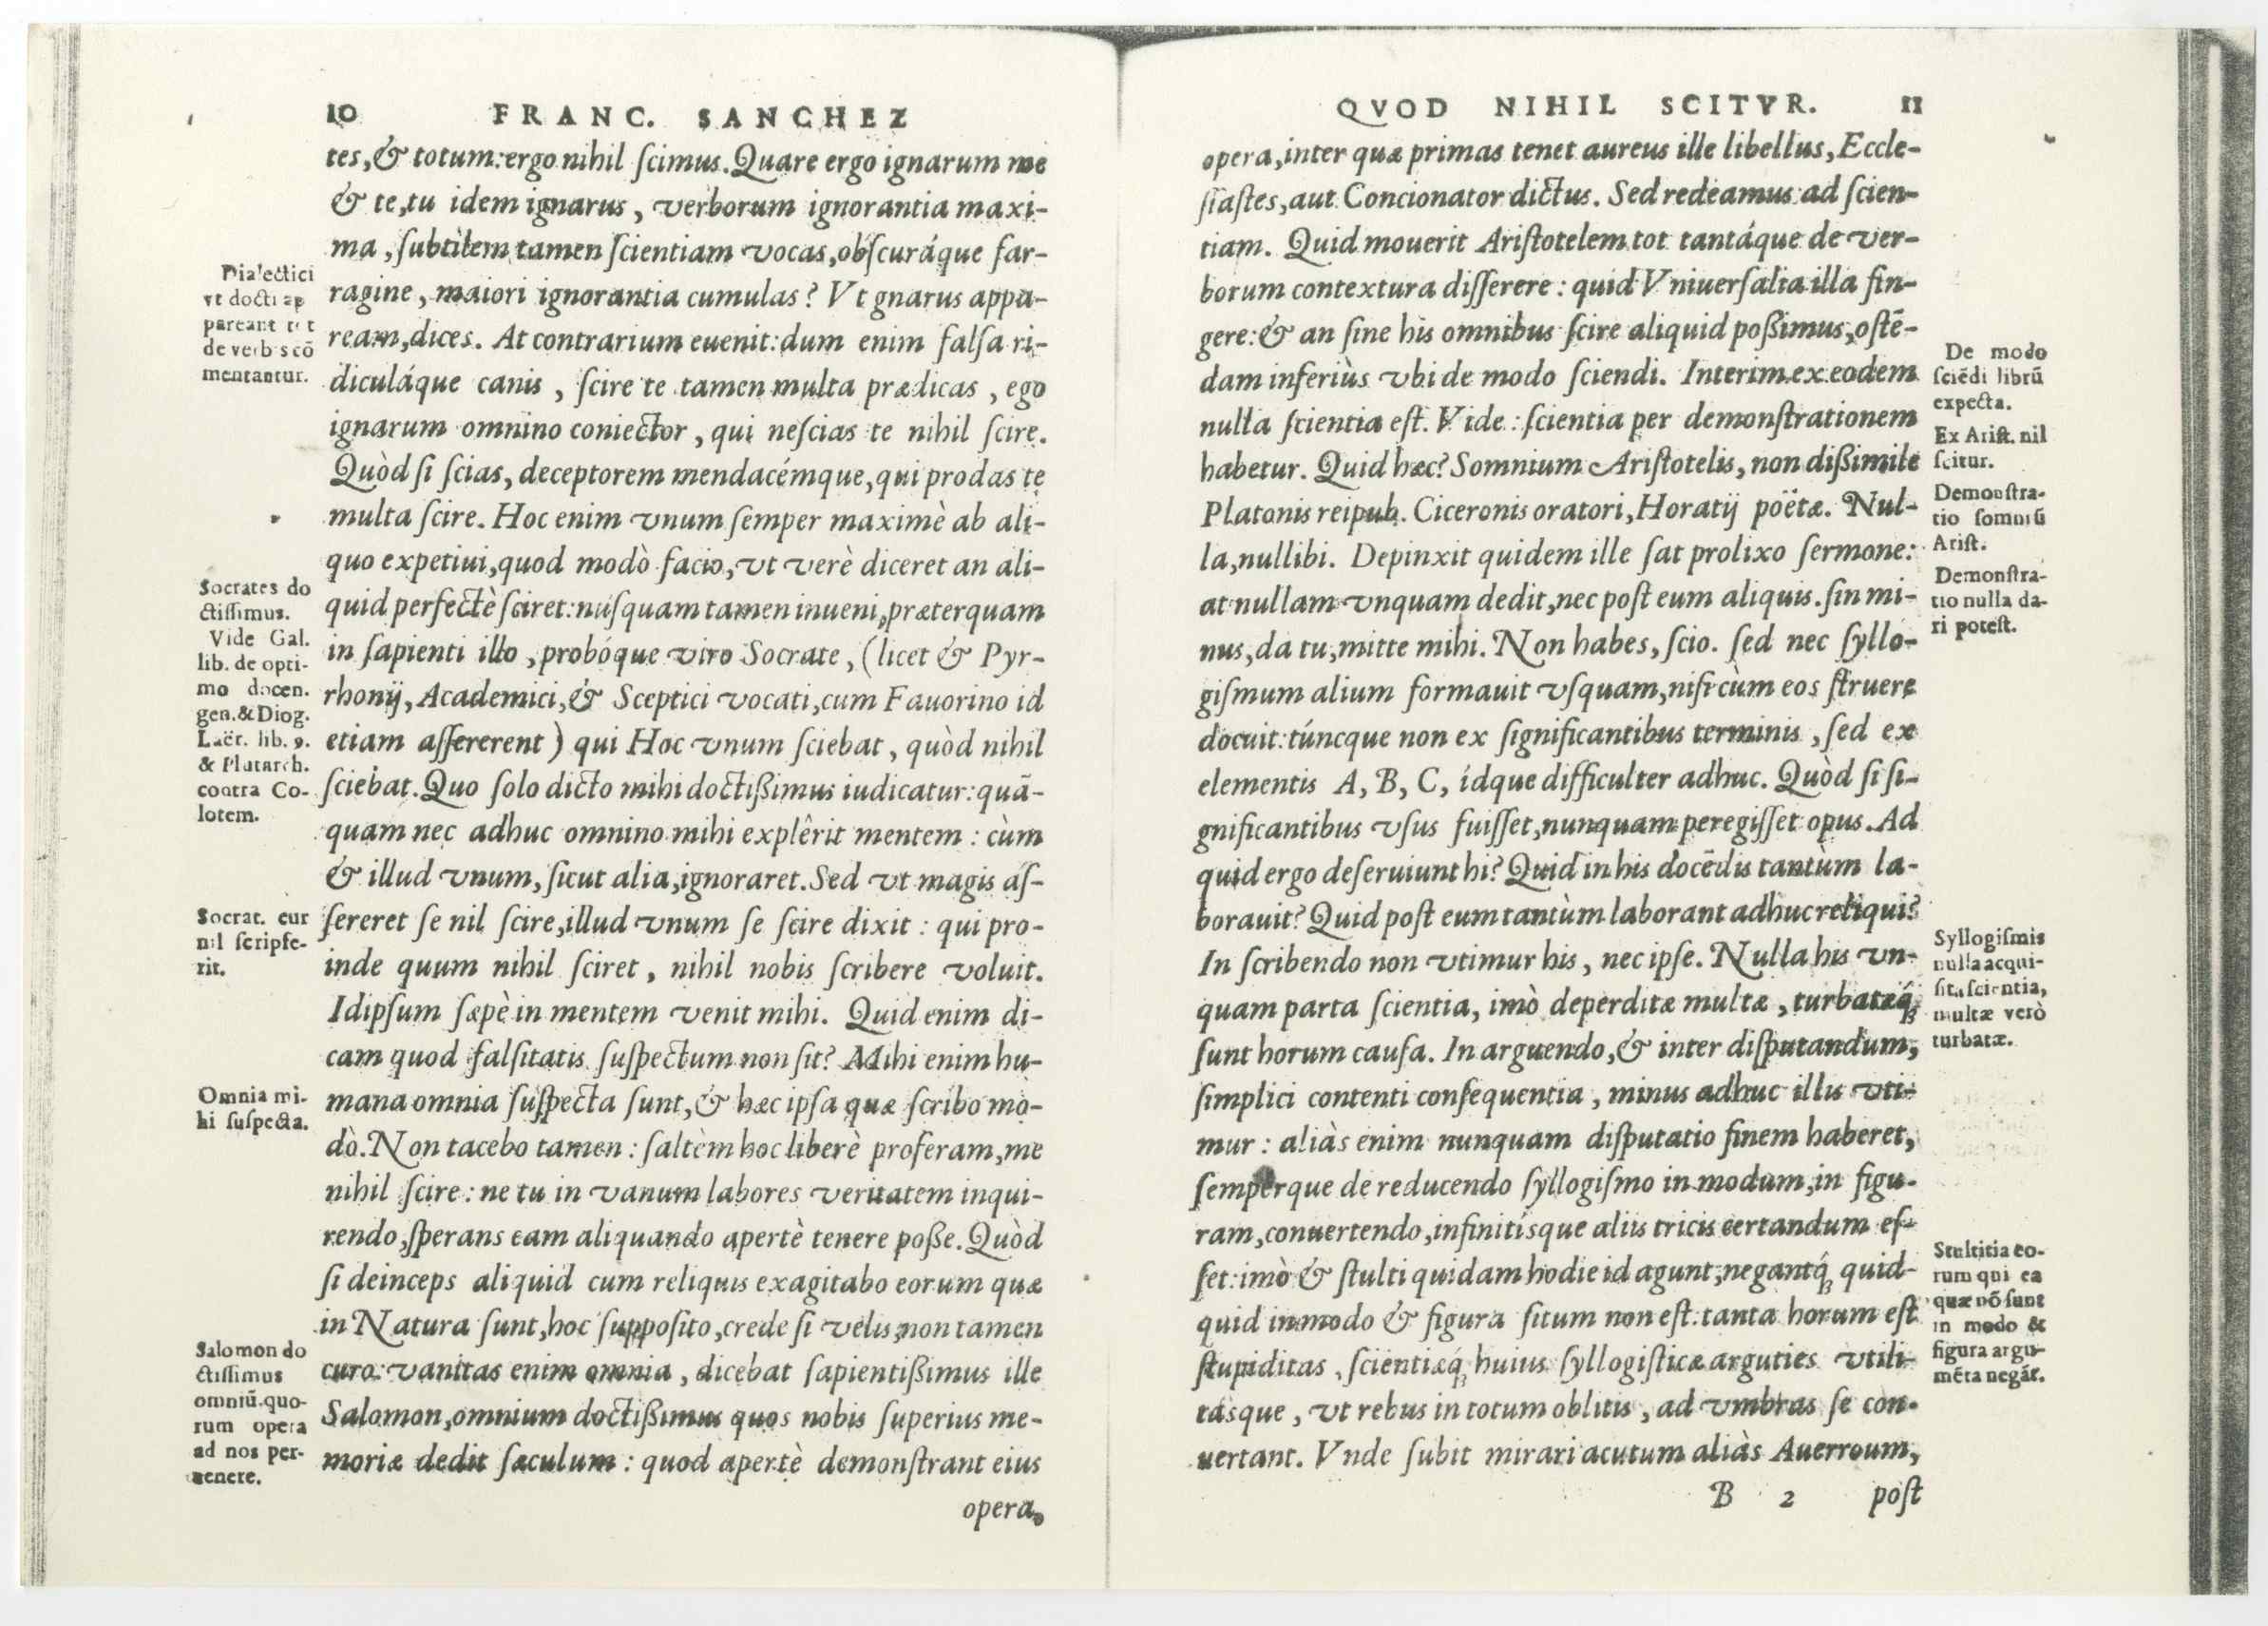 10 FRANC. SANCHEZ
tes, & totum: ergo nihil ſcimus. Quare ergo ignarum me
& te, tu idem ignarus, verborum ignorantia maxi-
ma, ſubtilem tamen ſcientiam vocas, obſcuráque far-
ragine, maiori ignorantia cumulas? Vt gnarus appa-
ream, dices. At contrarium euenit: dum enim falſa ri-
diculáque canis, ſcire te tamen multa prædicas, ego
ignarum omnino coniector, qui neſcias te nihil ſcire.
Quòd ſi ſcias, deceptorem mendacémque, qui prodas te
multa ſcire. Hoc enim vnum ſemper maximè ab ali-
quo expetiui, quod modò facio, vt verè diceret an ali-
quid perfectè ſciret: nuſquam tamen inueni, præterquam
in ſapienti illo, probóque viro Socrate, (licet & Pyr-
rhonij, Academici, & Sceptici vocati, cum Fauorino id
etiam aſſererent) qui Hoc vnum ſciebat, quòd nihil
ſciebat. Quo ſolo dicto mihi doctißimus iudicatur: quã-
quam nec adhuc omnino mihi explêrit mentem: cùm
& illud vnum, ſicut alia, ignoraret. Sed vt magis aſ-
ſereret ſe nil ſcire, illud vnum ſe ſcire dixit: qui pro-
inde quum nihil ſciret, nihil nobis ſcribere voluit.
Idipſum ſæpè in mentem venit mihi. Quid enim di-
cam quod falſitatis ſuſpectum non ſit? Mihi enim hu-
mana omnia ſuſpecta ſunt, & hæc ipſa quæ ſcribo mo-
dò. Non tacebo tamen: ſaltèm hoc liberè proferam, me
nihil ſcire: ne tu in vanum labores veritatem inqui-
rendo, ſperans eam aliquando apertè tenere poße. Quòd
ſi deinceps aliquid cum reliquis exagitabo eorum quæ
in Natura ſunt, hoc ſuppoſito, crede ſi velis, non tamen
curo: vanitas enim omnia, dicebat ſapientißimus ille
Salomon, omnium doctißimus quos nobis ſuperius me-
moriæ dedit ſæculum: quod apertè demonſtrant eius
opera,
Dialectici
vt docti ap
pareant tot
de verbis cõ
mentantur.
Socrates do
ctiſſimus.
Vide Gal.
lib. de opti-
mo docen.
gen. & Diog.
Laër. lib. 9.
& Plutarch.
contra Co-
lotem.
Socrat. cur
nil ſcripſe-
rit.
Omnia mi-
hi ſuſpecta.
Salomon do
ctiſſimus
omniũ quo-
rum opera
ad nos per-
uenere.
QVOD NIHIL SCITVR. 11
opera, inter quæ primas tenet aureus ille libellus, Eccle-
ſiaſtes, aut Concionator dictus. Sed redeamus ad ſcien-
tiam. Quid mouerit Ariſtotelem tot tantáque de ver-
borum contextura diſſerere: quid Vniuerſalia illa fin-
gere: & an ſine his omnibus ſcire aliquid poßimus, oſtẽ-
dam inferiùs vbi de modo ſciendi. Interim ex eodem
nulla ſcientia eſt. Vide: ſcientia per demonſtrationem
habetur. Quid hæc? Somnium Ariſtotelis, non dißimile
Platonis reipub. Ciceronis oratori, Horatij poëtæ. Nul-
la, nullibi. Depinxit quidem ille ſat prolixo ſermone:
at nullam vnquam dedit, nec poſt eum aliquis. ſin mi-
nus, da tu, mitte mihi. Non habes, ſcio. ſed nec ſyllo-
giſmum alium formauit vſquam, niſi cùm eos ſtruere
docuit: túncque non ex ſignificantibus terminis, ſed ex
elementis A, B, C, ídque difficulter adhuc. Quòd ſi ſi-
gnificantibus vſus fuiſſet, nunquam peregiſſet opus. Ad
quid ergo deſeruiunt hi? Quid in his docẽdis tantùm la-
borauit? Quid poſt eum tantùm laborant adhuc reliqui?
In ſcribendo non vtimur his, nec ipſe. Nulla his vn-
quam parta ſcientia, imò deperditæ multæ, turbatæq́;
ſunt horum cauſa. In arguendo, & inter diſputandum,
ſimplici contenti conſequentia, minus adhuc illis vti-
mur: aliàs enim nunquam diſputatio finem haberet,
ſemperque de reducendo ſyllogiſmo in modum, in figu-
ram, conuertendo, infinitíſque aliis tricis certandum eſ-
ſet: imò & ſtulti quidam hodie id agunt, negantq́; quid-
quid in modo & figura ſitum non eſt: tanta horum eſt
ſtupiditas, ſcientiæq́; huius ſyllogiſticæ arguties vtili-
táſque, vt rebus in totum oblitis, ad vmbras ſe con-
uertant. Vnde ſubit mirari acutum aliàs Auerroum,
B 2 poſt
De modo
ſciẽdi librũ
expecta.
Ex Ariſt. nil
ſcitur.
Demonſtra-
tio ſomniũ
Ariſt.
Demonſtra-
tio nulla da-
ri poteſt.
Syllogiſmis
nulla acqui-
ſita ſcientia,
multæ verò
turbatæ.
Stultitia eo-
rum qui ea
quæ nõ ſunt
in modo &
figura argu-
mẽta negãt.